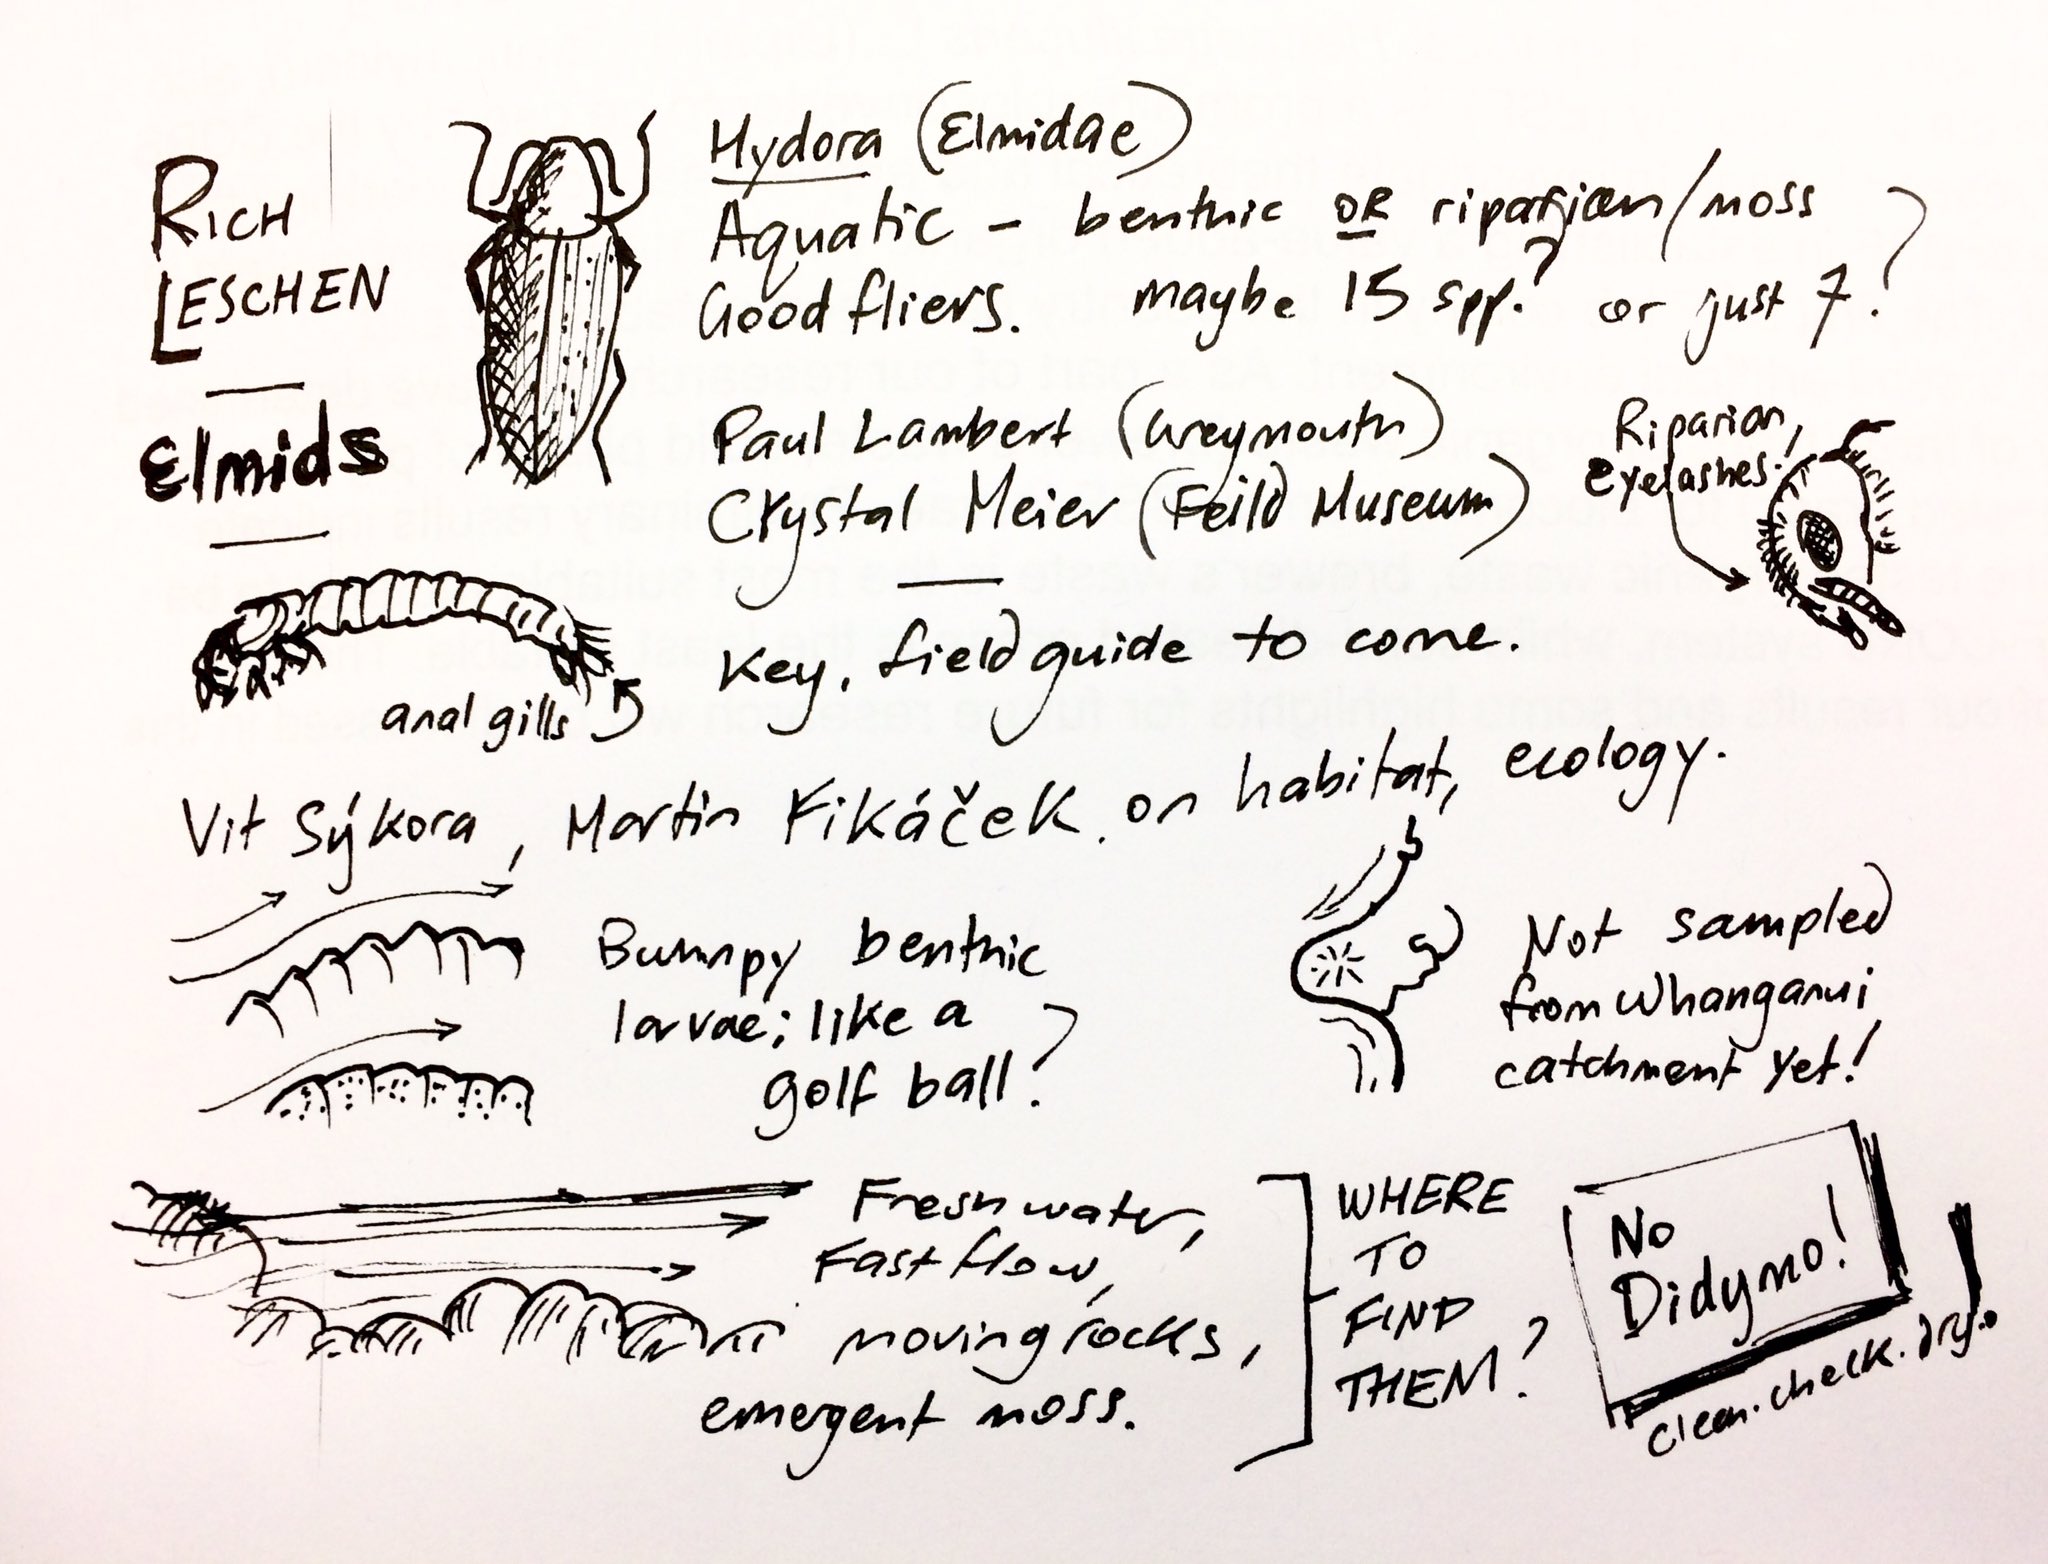 RICH
LESCHEN
Elmids
Hydora (Elmidae)
Aquatic – benthic OR riparian/moss
Good fliers. maybe 15 spp.? or just 7?
Paul Lambert (Greymouth)
Crystal Meier (Feild Museum)
Riparian,
eyelashes.
Key, field guide to come.
anal gills
Vit Sýkora, Martin Fikáček. on habitat, ecology.
Bumpy benthic
larvae; like a
golf ball?
Not sampled
from Whanganui
catchment yet!
Fresh water,
Fast flow,
moving rocks,
emergent moss.
WHERE
TO
FIND
THEM?
No
Didymo!
clean.check.dry.